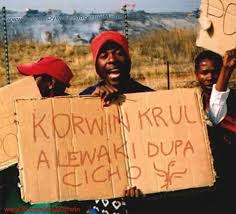 KORWIN KRUL
A LEWAKI DUPA
CICHO